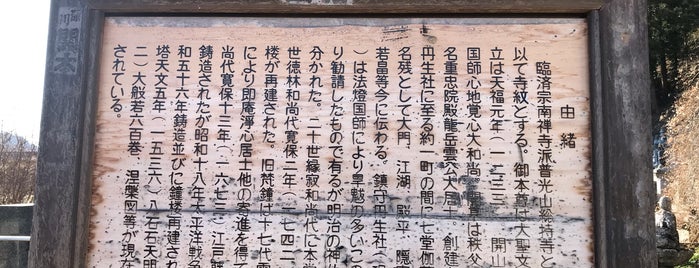 由緒
臨済宗南禅寺派普光山
以て寺紋とする。御本尊は大聖文
立は天福元年(一二三三)開山
国師心地覚心大和尚 開基は秩父
名重忠院殿龍岳雲公大居士。創建
丹生社に至る約一町の間に七堂伽
名残として大門、江湖、殿平、隠
若畠等今に伝わる。鎮守丹生社(
)は法燈国師により悪魁の多いこの
り勧請したもので有るが明治の神
分かれた。二十世縁寂和尚代に本
世徳林和尚代寛保二年(一七四二
楼が再建された。旧梵鐘は十七代
により即庵浄心居士他の寄進を得て
尚代寛保十三年(一六七三)江戸
鋳造されたが昭和十八年太平洋戦争
和五十六年鋳造並びに鐘楼再建され
塔天文五年(一五三六)八石石天明
二)大般若六百巻、涅槃図等が現在
されている。